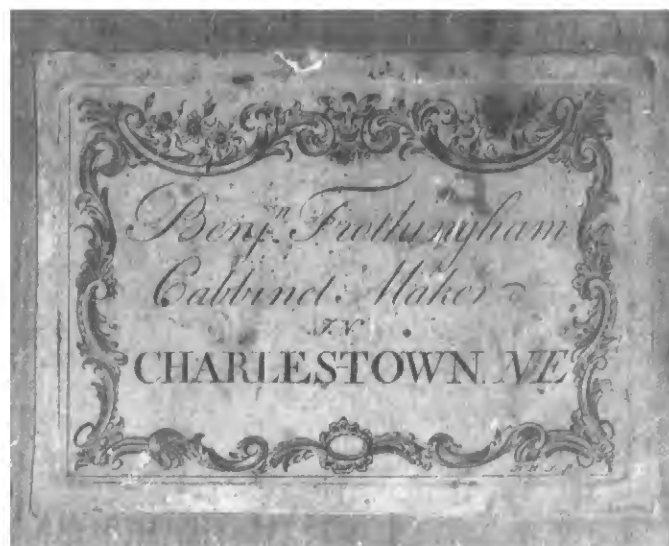 Benjn. Frothingham
Cabbinet Maker
IN
CHARLESTOWN. NE